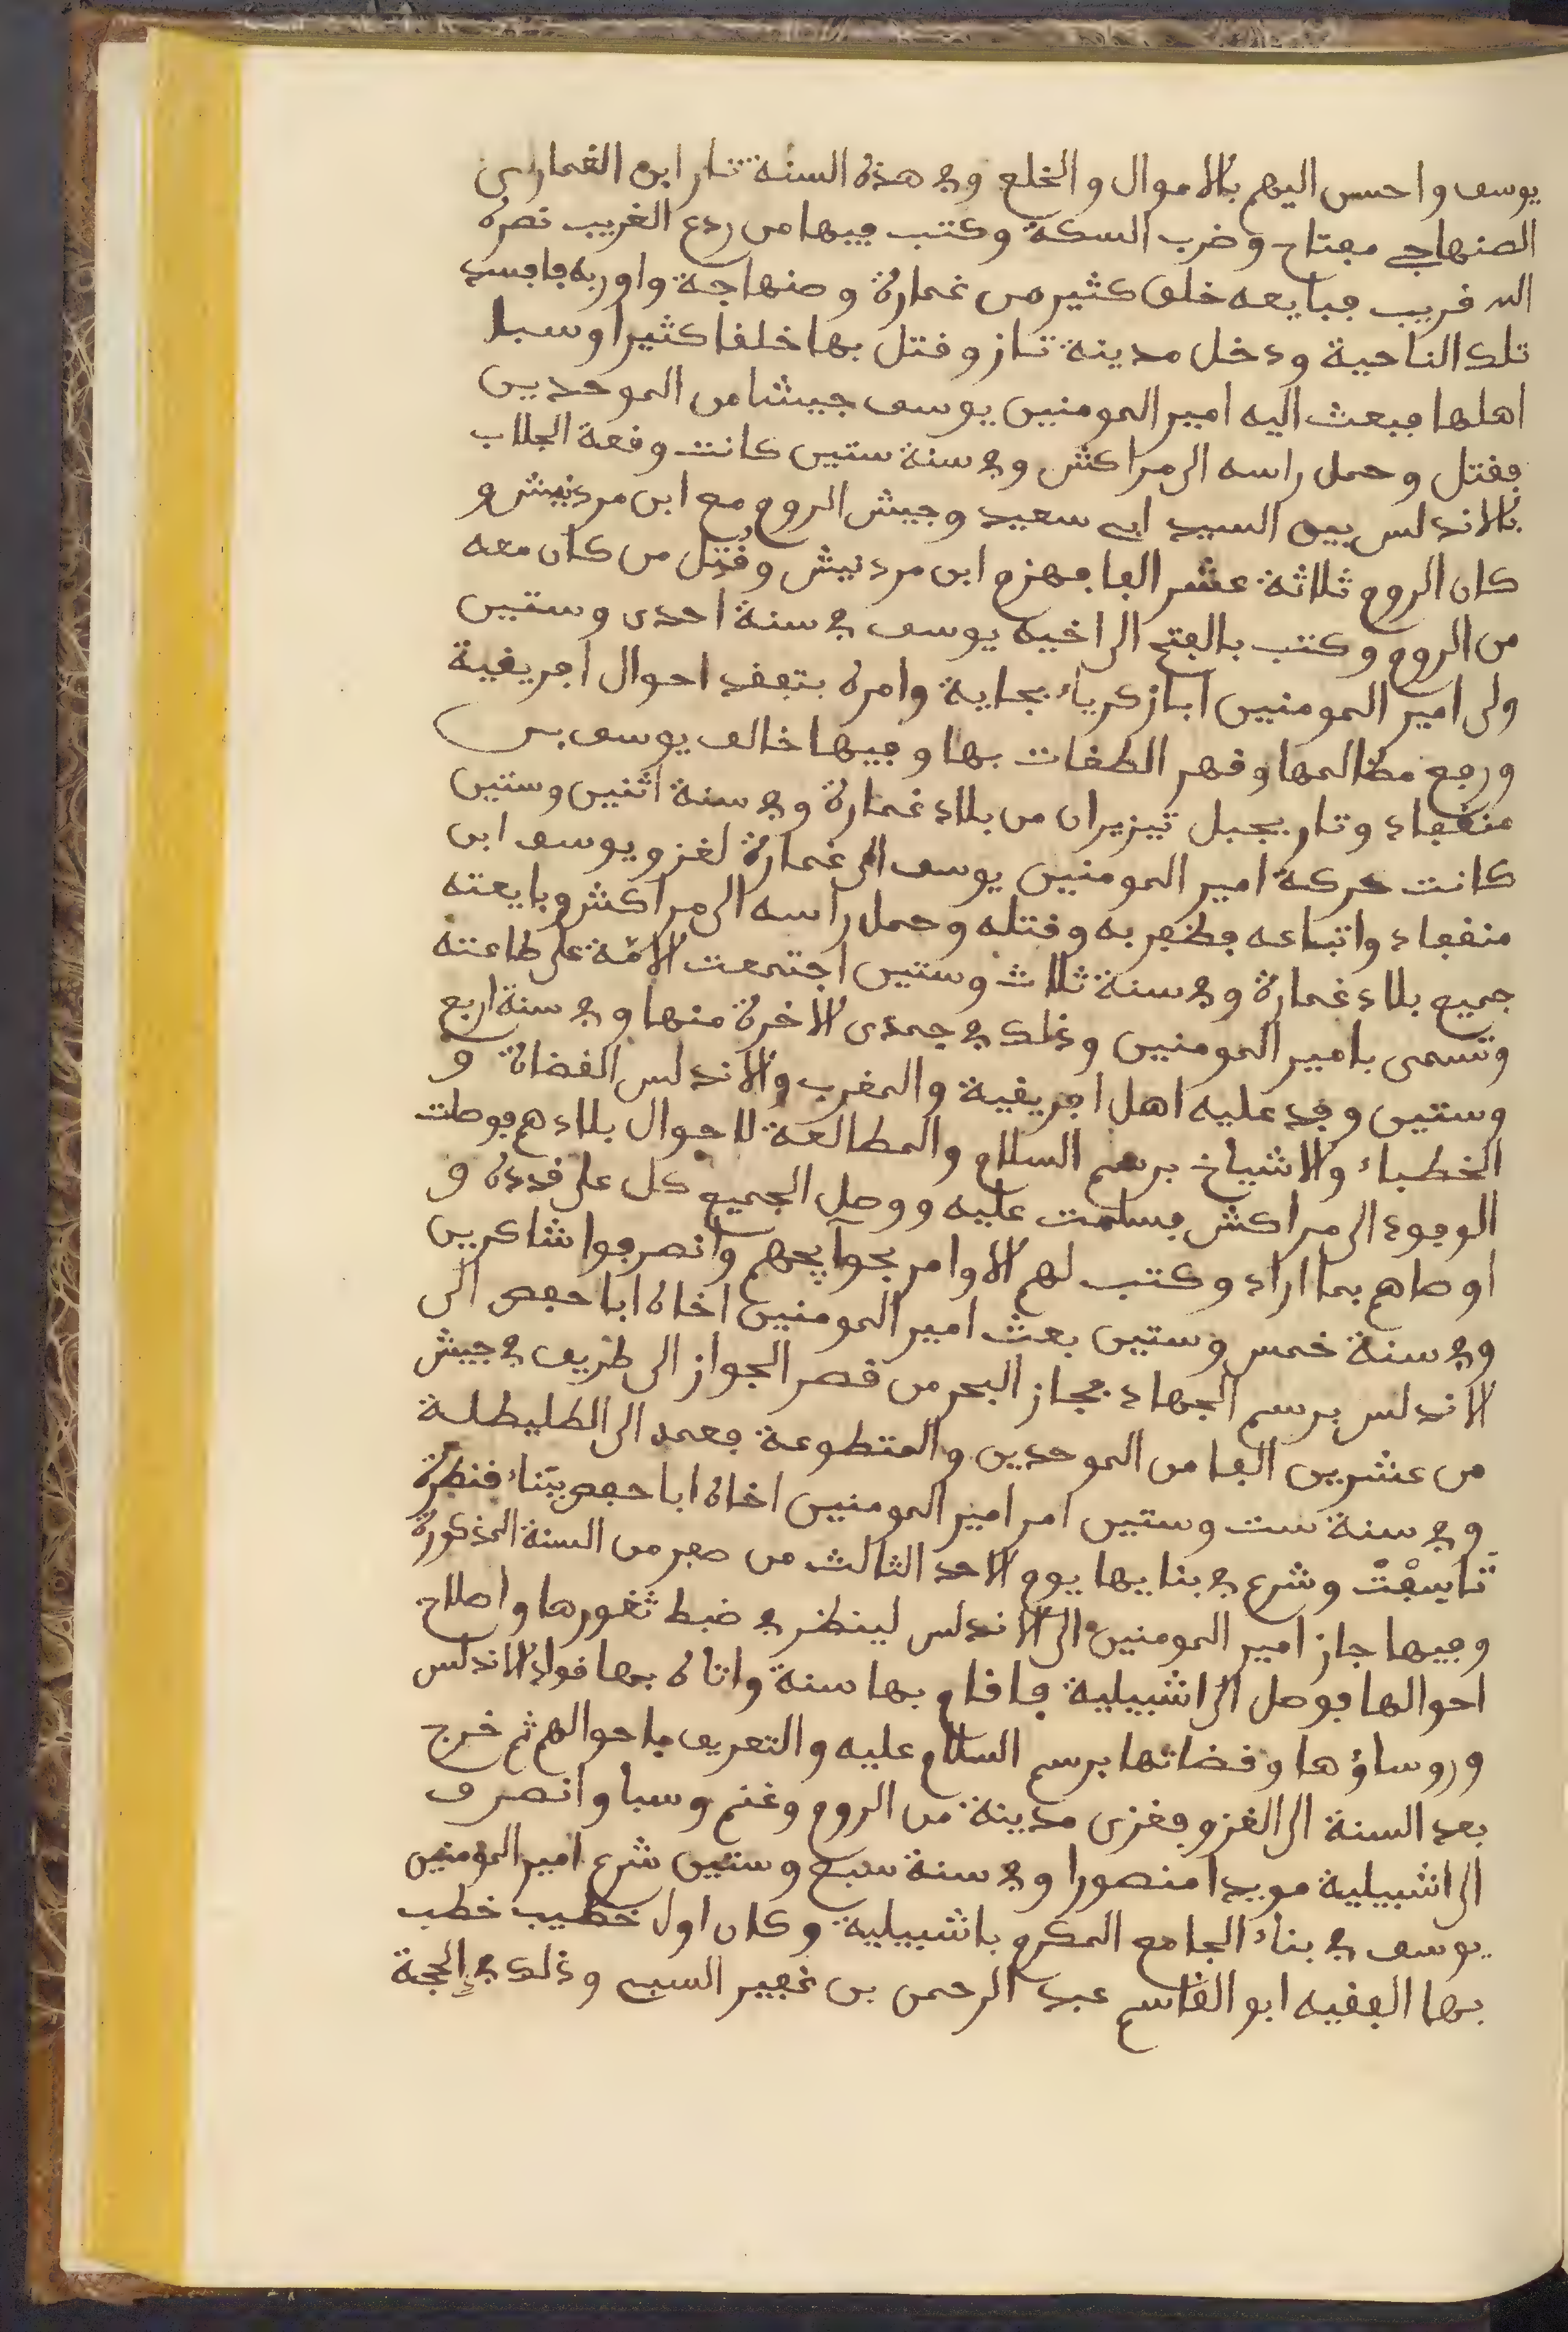 يوسف واحسن اليهم بالاموال والخلع وفي هذه السنة ثار ابن الغماري
الصنهاجي مفتاح وضرب السكة وكتب فيها من ردع الغريب نصره
الله قريب فبايعه خلق كثير من غمارة وصنهاجة واوربه فافسد
تلك الناحية ودخل مدينة تاز وقتل بها خلقا كثيرا وسبا
اهلها فبعث اليه امير المومنين يوسف جيشا من الموحدين
فقتل وحمل راسه الى مراكش وفي سنة ستين كانت وقعة الجلاب
بالاندلس بين السيد ابي سعيد وجيش الروم مع ابن مردنيش و
كان الروم ثلاثة عشر الفا فهزم ابن مردنيش وقُتِل من كان معه
من الروم وكتب بالفتح الى اخيه يوسف في سنة احدى وستين
ولى امير المومنين ابا زكرياء بجاية وامره بتفقد احوال افريقية
ورفع مظالمها وقهر الطغات بها وفيها خالف يوسف بن
منقفاد وثار بجبل تيزيران من بلاد غمارة وفي سنة اثنين وستين
كانت حركة امير المومنين يوسف الى غمارة لغزو يوسف ابن
منقفاد واتباعه فظفر به وقتله وحمل راسه الى مراكش وبايعته
جميع بلاد غمارة وفي سنة ثلاث وستين اجتمعت الامّة على طاعته
وتسمى بامير المومنين وذلك في جمدى الاخرة منها وفي سنة اربع
وستين وفد عليه اهل افريقية والمغرب والاندلس القضاة و
الخطباء والاشياخ برسم السلام والمطالعة للاحوال بلادهم فوصلت
الوفود الى مراكش فسلمت عليه ووصل الجميع كل على قدره و
اوصاهم بما اراد وكتب لهم الاوامر بحوآيجهم وانصرفوا شاكرين
وفي سنة خمس وستين بعث امير المومنين اخاه ابا حفص الى
الاندلس برسم الجهاد فجاز البحر من قصر الجواز الى طريف في جيش
من عشرين الفا من الموحدين والمتطوعة فعمد الى الطليطلة
وفي سنة ست وستين امر امير المومنين اخاه ابا حفص ببناء قنطرة
تاسِفْتْ وشرع في بنايها يوم الاحد الثالث من صفر من السنة المذكورة
وفيها جاز امير المومنين الى الاندلس لينظر في ضبط ثغورها واصلاح
احوالها فوصل الى اشبيلية فاقام بها سنة واتاه بها قواد الاندلس
وروساؤها وقضاتها برسم السلام عليه والتعريف باحوالهم ثم خرج
بعد السنة الى الغزو فغزى مدينة من الروم وغنم وسبا وانصرف
الى اشبيلية مويدا منصورا وفي سنة سبع وستين شرع امير المومنين
يوسف في بناء الجامع المكرم باشبيلية وكان اول خطيب خطب
بها الفقيه ابو القاسم عبد الرحمن بن غفير السبي وذلك في الحجة